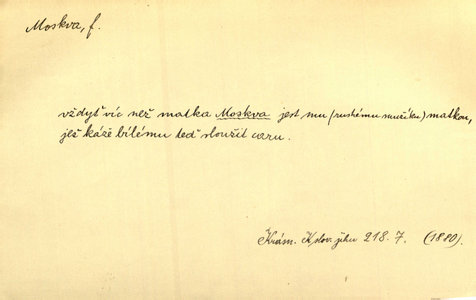 Moskva, f.
vždyť víc než matka Moskva jest mu (ruskému mužíku) matkou,
jež káže bílému teď sloužit caru.
Krám. K slov. jihu 218. 7. (1880)